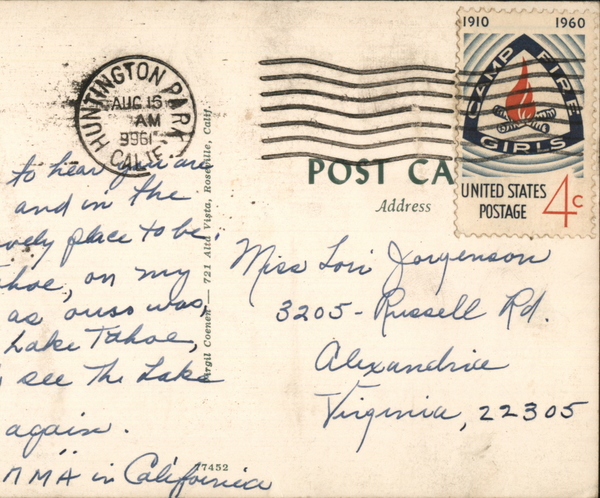 HUNTINGTON PARK
AUG 15
AM
1966
CALIF.
1910 1960
CAMP FIRE
GIRLS
UNITED STATES
POSTAGE 4c
POST CA
Address
to hear you are
and in the
vely place to be.
hoe, on my
as ouso was,
Lake Tahoe,
see the Lake
again.
MMA in California
Virgil Coenen — 721 Alta Vista, Roseville, Calif.
77452
Miss Lori Jorgenson
3205 - Russell Rd.
Alexandria
Virginia, 22305